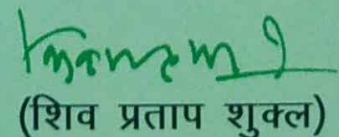 (शिव प्रताप शुक्ल)